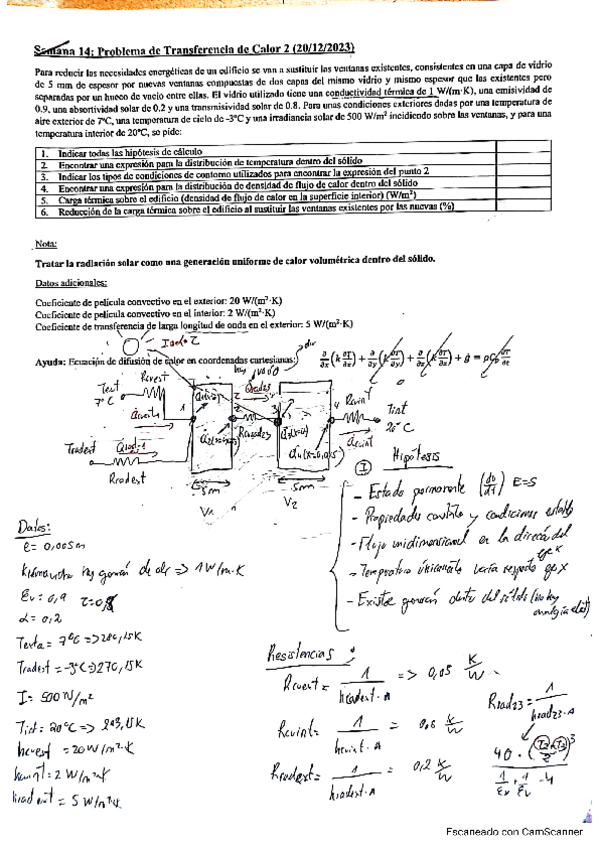 Semana 14: Problema de Transferencia de Calor 2 (20/12/2023)
Para reducir las necesidades energéticas de un edificio se van a sustituir las ventanas existentes, consistentes en una capa de vidrio
de 5 mm de espesor por nuevas ventanas compuestas de dos capas del mismo vidrio y mismo espesor que las existentes pero
separadas por un hueco de vacío entre ellas. El vidrio utilizado tiene una conductividad térmica de 1 W/(m·K), una emisividad de
0.9, una absortividad solar de 0.2 y una transmisividad solar de 0.8. Para unas condiciones exteriores dadas por una temperatura de
aire exterior de 7ºC, una temperatura de cielo de -3ºC y una irradiancia solar de 500 W/m² incidiendo sobre las ventanas, y para una
temperatura interior de 20ºC, se pide:
1. Indicar todas las hipótesis de cálculo
2. Encontrar una expresión para la distribución de temperatura dentro del sólido
3. Indicar los tipos de condiciones de contorno utilizados para encontrar la expresión del punto 2
4. Encontrar una expresión para la distribución de densidad de flujo de calor dentro del sólido
5. Carga térmica sobre el edificio (densidad de flujo de calor en la superficie interior) (W/m²)
6. Reducción de la carga térmica sobre el edificio al sustituir las ventanas existentes por las nuevas (%)
Nota:
Tratar la radiación solar como una generación uniforme de calor volumétrica dentro del sólido.
Datos adicionales:
Coeficiente de película convectivo en el exterior: 20 W/(m²·K)
Coeficiente de película convectivo en el interior: 2 W/(m²·K)
Coeficiente de transferencia de larga longitud de onda en el exterior: 5 W/(m²·K)
Ayuda: Ecuación de difusión de calor en coordenadas cartesianas: ∂/∂x(k ∂T/∂x) + ∂/∂y(k ∂T/∂y) + ∂/∂z(k ∂T/∂z) + q̇ = ρCp ∂T/∂t
Text
7ºC
Rcvext
Tradext
Rradext
1
2
3
4
Rcvint
Tint
20ºC
5m
5mm
V1
V2
I Hipótesis
- Estado permanente E=S
- Propiedades constantes y condiciones estables
- Flujo unidimensional en la dirección del
eje X
- Temperatura únicamente varía respecto eje X
- Existe generación dentro del sólido
Datos:
e = 0,005m
=> 1 W/m·K
Ev = 0,9 τ=0,8
α = 0,2
Texta = 7ºC => 280,15K
Tradext = -3ºC => 270,15K
I = 500 W/m²
Tint = 20ºC => 293,15K
hcvext = 20 W/m²·K
hcvint = 2 W/m²·K
hradext = 5 W/m²K
Resistencias:
Rcvext = 1 / hcvext·A => 0,05 K/W
Rcvint = 1 / hcvint·A =
Rradext = 1 / hradext·A = 0,2 K/W
Rrad23 = 1 / hrad23·A
Escaneado con CamScanner